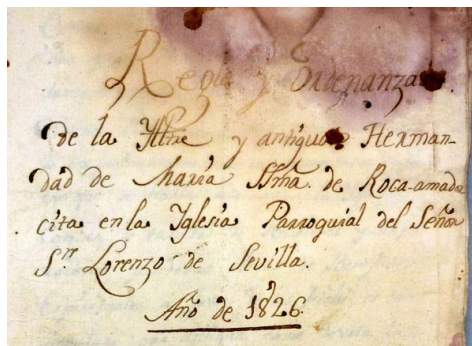 Regla y Ordenanzas
de la Yltre y antigua Herman-
dad de Maria Ssma. de Roca-amador
cita en la Yglesia Parroquial del Señor
Sn. Lorenzo de Sevilla.
Año de 1826.